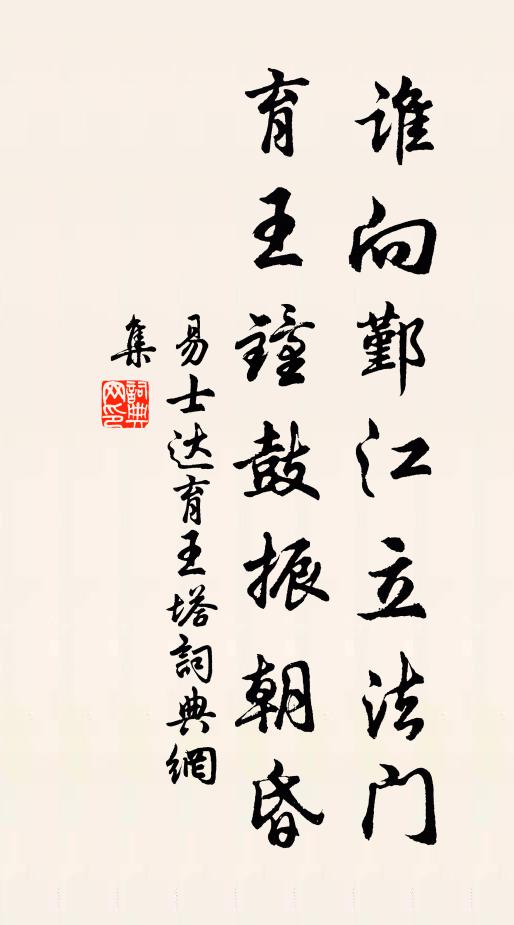 谁向鄞江立法门
育王鐘鼓振朝昏
易士达育王塔詞典網
集
詞典网印